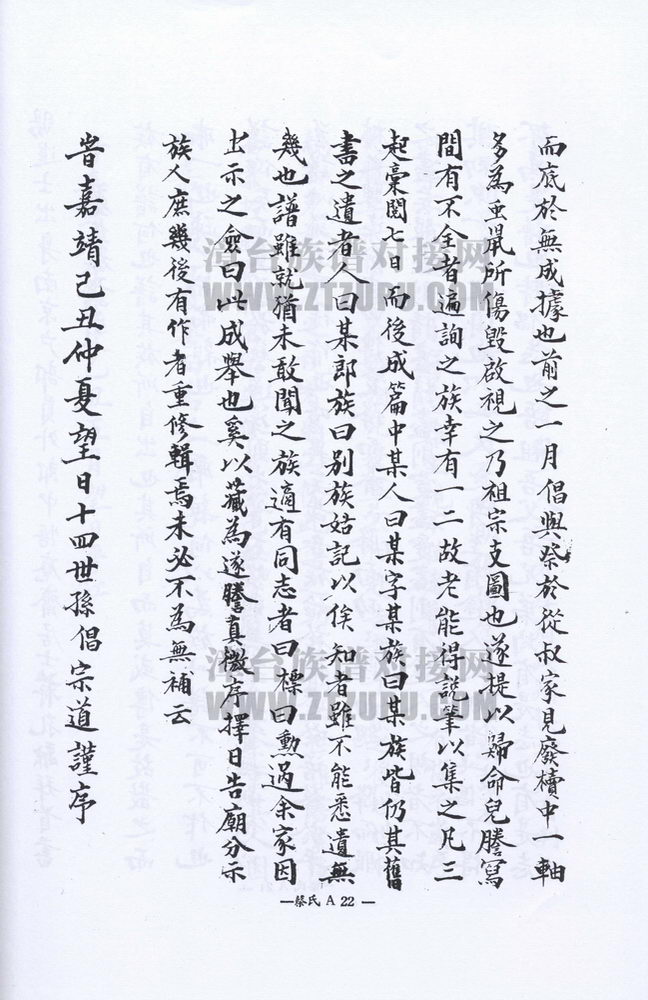 而底於無成據也前之一月倡與祭於從叔家見廢櫝中一軸
多為虫鼠所傷毀啟視之乃祖宗支圖也遂提以歸命兒謄寫
間有不全者遍詢之族幸有一二故老能得說筆以集之凡三
起稾閱七日而後成篇中某人曰某字某族曰某族皆仍其舊
書之遺者人曰某郎族曰別族姑記以俟知者雖不能悉遺無
幾也譜雖就猶未敢聞之族適有同志者曰標曰勳過余家因
出示之僉曰此成舉也奚以藏為遂謄真徵序擇日告廟分示
族人庶幾後有作者重修輯焉未必不為無補云
旹嘉靖己丑仲夏望日十四世孫倡宗道謹序
—蔡氏 A 22 —
漳台族谱对接网
WWW.ZTZUPU.COM
漳台族谱对接网
WWW.ZTZUPU.COM